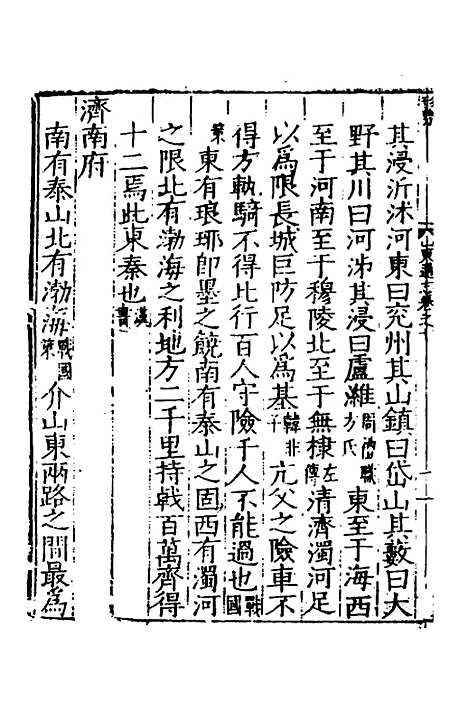 其浸沂沭河東曰兖州其山鎮曰岱山其藪曰大
野其川曰河泲其浸曰盧濰周禮職方氏東至于海西
至于河南至于穆陵北至于無棣左傳清濟濁河足
以為限長城巨防足以為基韓非子亢父之險車不
得方軌騎不得比行百人守險千人不能過也戰國
策東有琅琊即墨之饒南有泰山之固西有濁河
之限北有渤海之利地方二千里持戟百萬齊得
十二焉此東秦也漢書
濟南府
南有泰山北有渤海戰國策介山東兩路之間最為